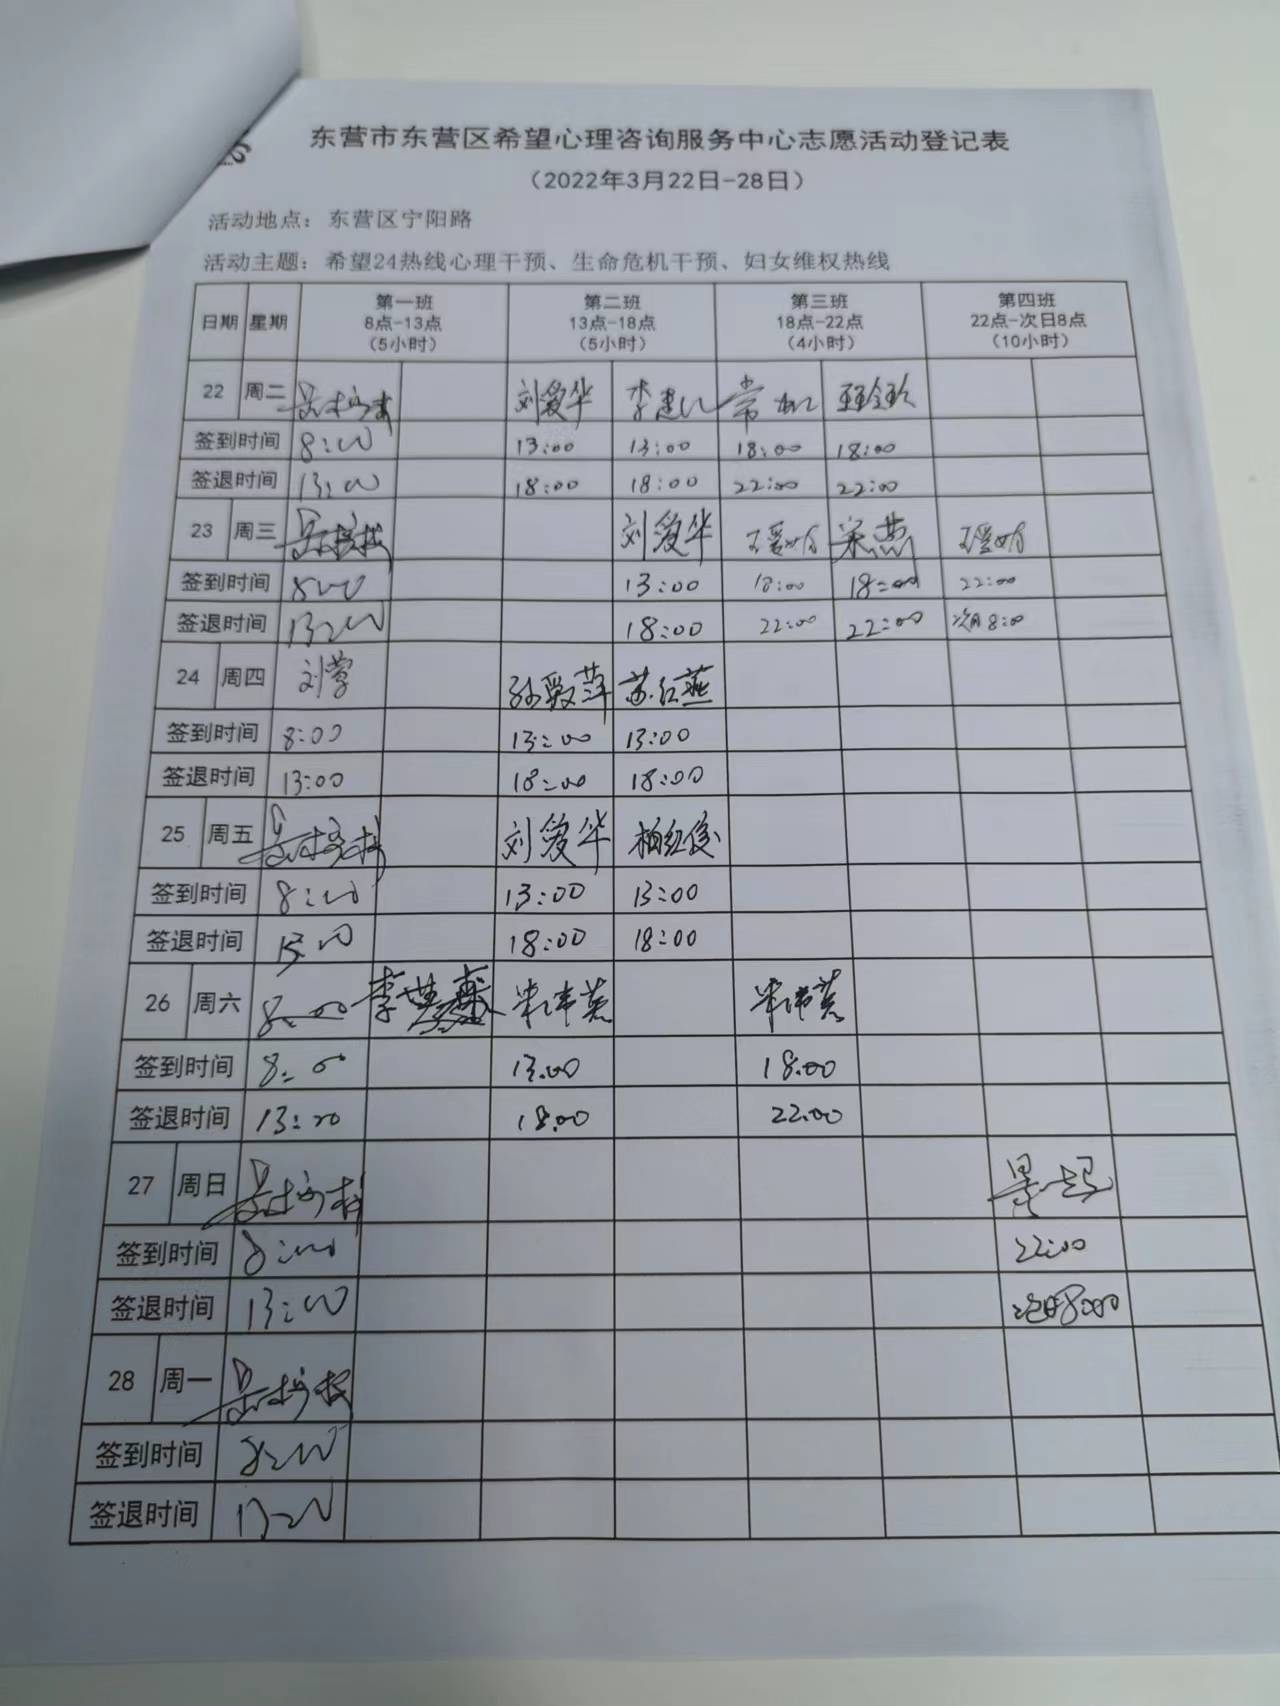 东营市东营区希望心理咨询服务中心志愿活动登记表
（2022年3月22日-28日）
活动地点：东营区宁阳路
活动主题：希望24热线心理干预、生命危机干预、妇女维权热线
日期 星期 第一班 8点-13点 （5小时） 第二班 13点-18点 （5小时） 第三班 18点-22点 （4小时） 第四班 22点-次日8点 （10小时）
22 周二 刘爱华
签到时间 8:00 13:00 13:00 18:00 18:00
签退时间 13:00 18:00 18:00 22:00 22:00
23 周三 刘爱华 宋燕
签到时间 8:00 13:00 18:00 18:00 22:00
签退时间 13:00 18:00 22:00 22:00 次日8:00
24 周四 苏红燕
签到时间 8:00 13:00 13:00
签退时间 13:00 18:00 18:00
25 周五 刘爱华
签到时间 8:00 13:00 13:00
签退时间 13:00 18:00 18:00
26 周六 8:00
签到时间 8:00 13:00 18:00
签退时间 13:00 18:00 22:00
27 周日
签到时间 8:00 22:00
签退时间 13:00 次日8:00
28 周一
签到时间 8:00
签退时间 13:00